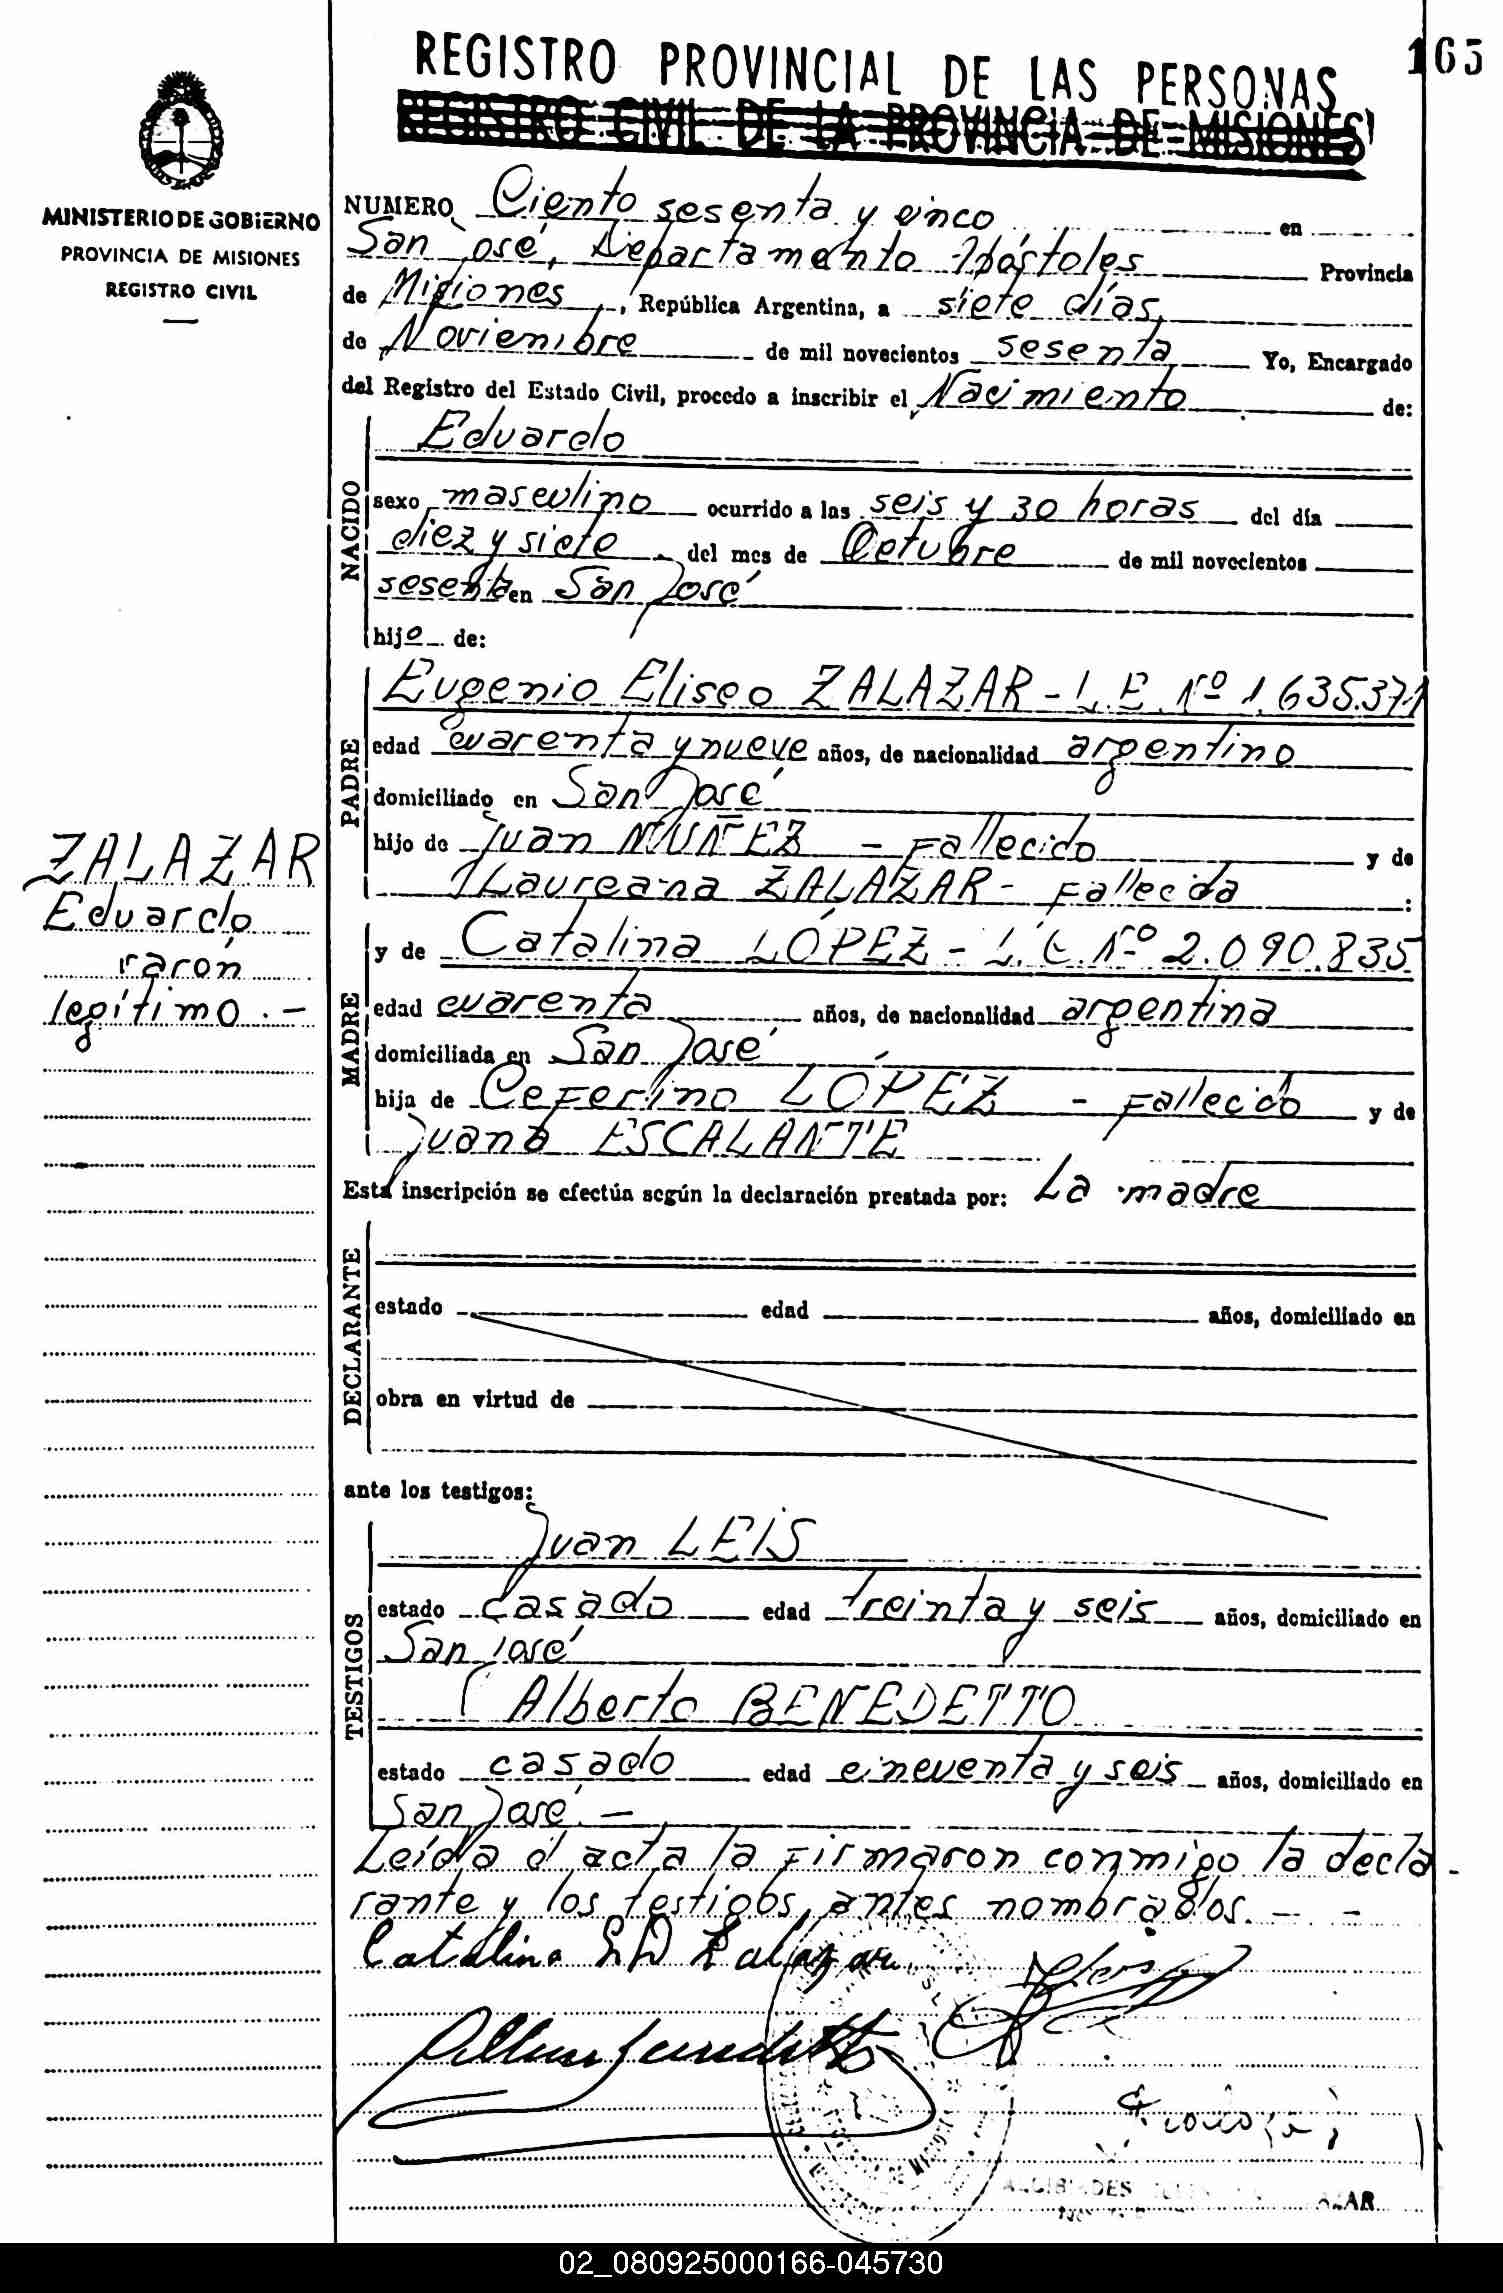 REGISTRO PROVINCIAL DE LAS PERSONAS
165
REGISTRO CIVIL DE LA PROVINCIA DE MISIONES
MINISTERIO DE GOBIERNO
PROVINCIA DE MISIONES
REGISTRO CIVIL
NUMERO Ciento sesenta y cinco en
San José, Departamento Apóstoles Provincia
de Misiones, República Argentina, a siete días,
de Noviembre de mil novecientos sesenta Yo, Encargado
del Registro del Estado Civil, procedo a inscribir el Nacimiento de:
NACIDO
Eduardo
sexo masculino ocurrido a las seis y 30 horas del día
diez y siete del mes de Octubre de mil novecientos
sesenta en San José
hijo de:
PADRE
Eugenio Eliseo ZALAZAR - L.E. Nº 1.635.371
edad cuarenta y nueve años, de nacionalidad argentino
domiciliado en San José
hijo de Juan NUÑEZ - Fallecido y de
Laureana ZALAZAR - Fallecida :
ZALAZAR
Eduardo
varón
legítimo.-
MADRE
y de Catalina LÓPEZ - L.C. Nº 2.090.835
edad cuarenta años, de nacionalidad argentina
domiciliada en San José
hija de Ceferino LÓPEZ - Fallecido y de
Juana ESCALANTE
Esta inscripción se efectúa según la declaración prestada por: La madre
DECLARANTE
estado edad años, domiciliado en
obra en virtud de
ante los testigos:
TESTIGOS
Juan LEIS
estado casado edad treinta y seis años, domiciliado en
San José
Alberto BENEDETTO
estado casado edad cincuenta y seis años, domiciliado en
San José.-
Leída el acta la firmaron conmigo la decla-
rante y los testigos antes nombrados.- -
Catalina LD Zalazar
02_080925000166-045730